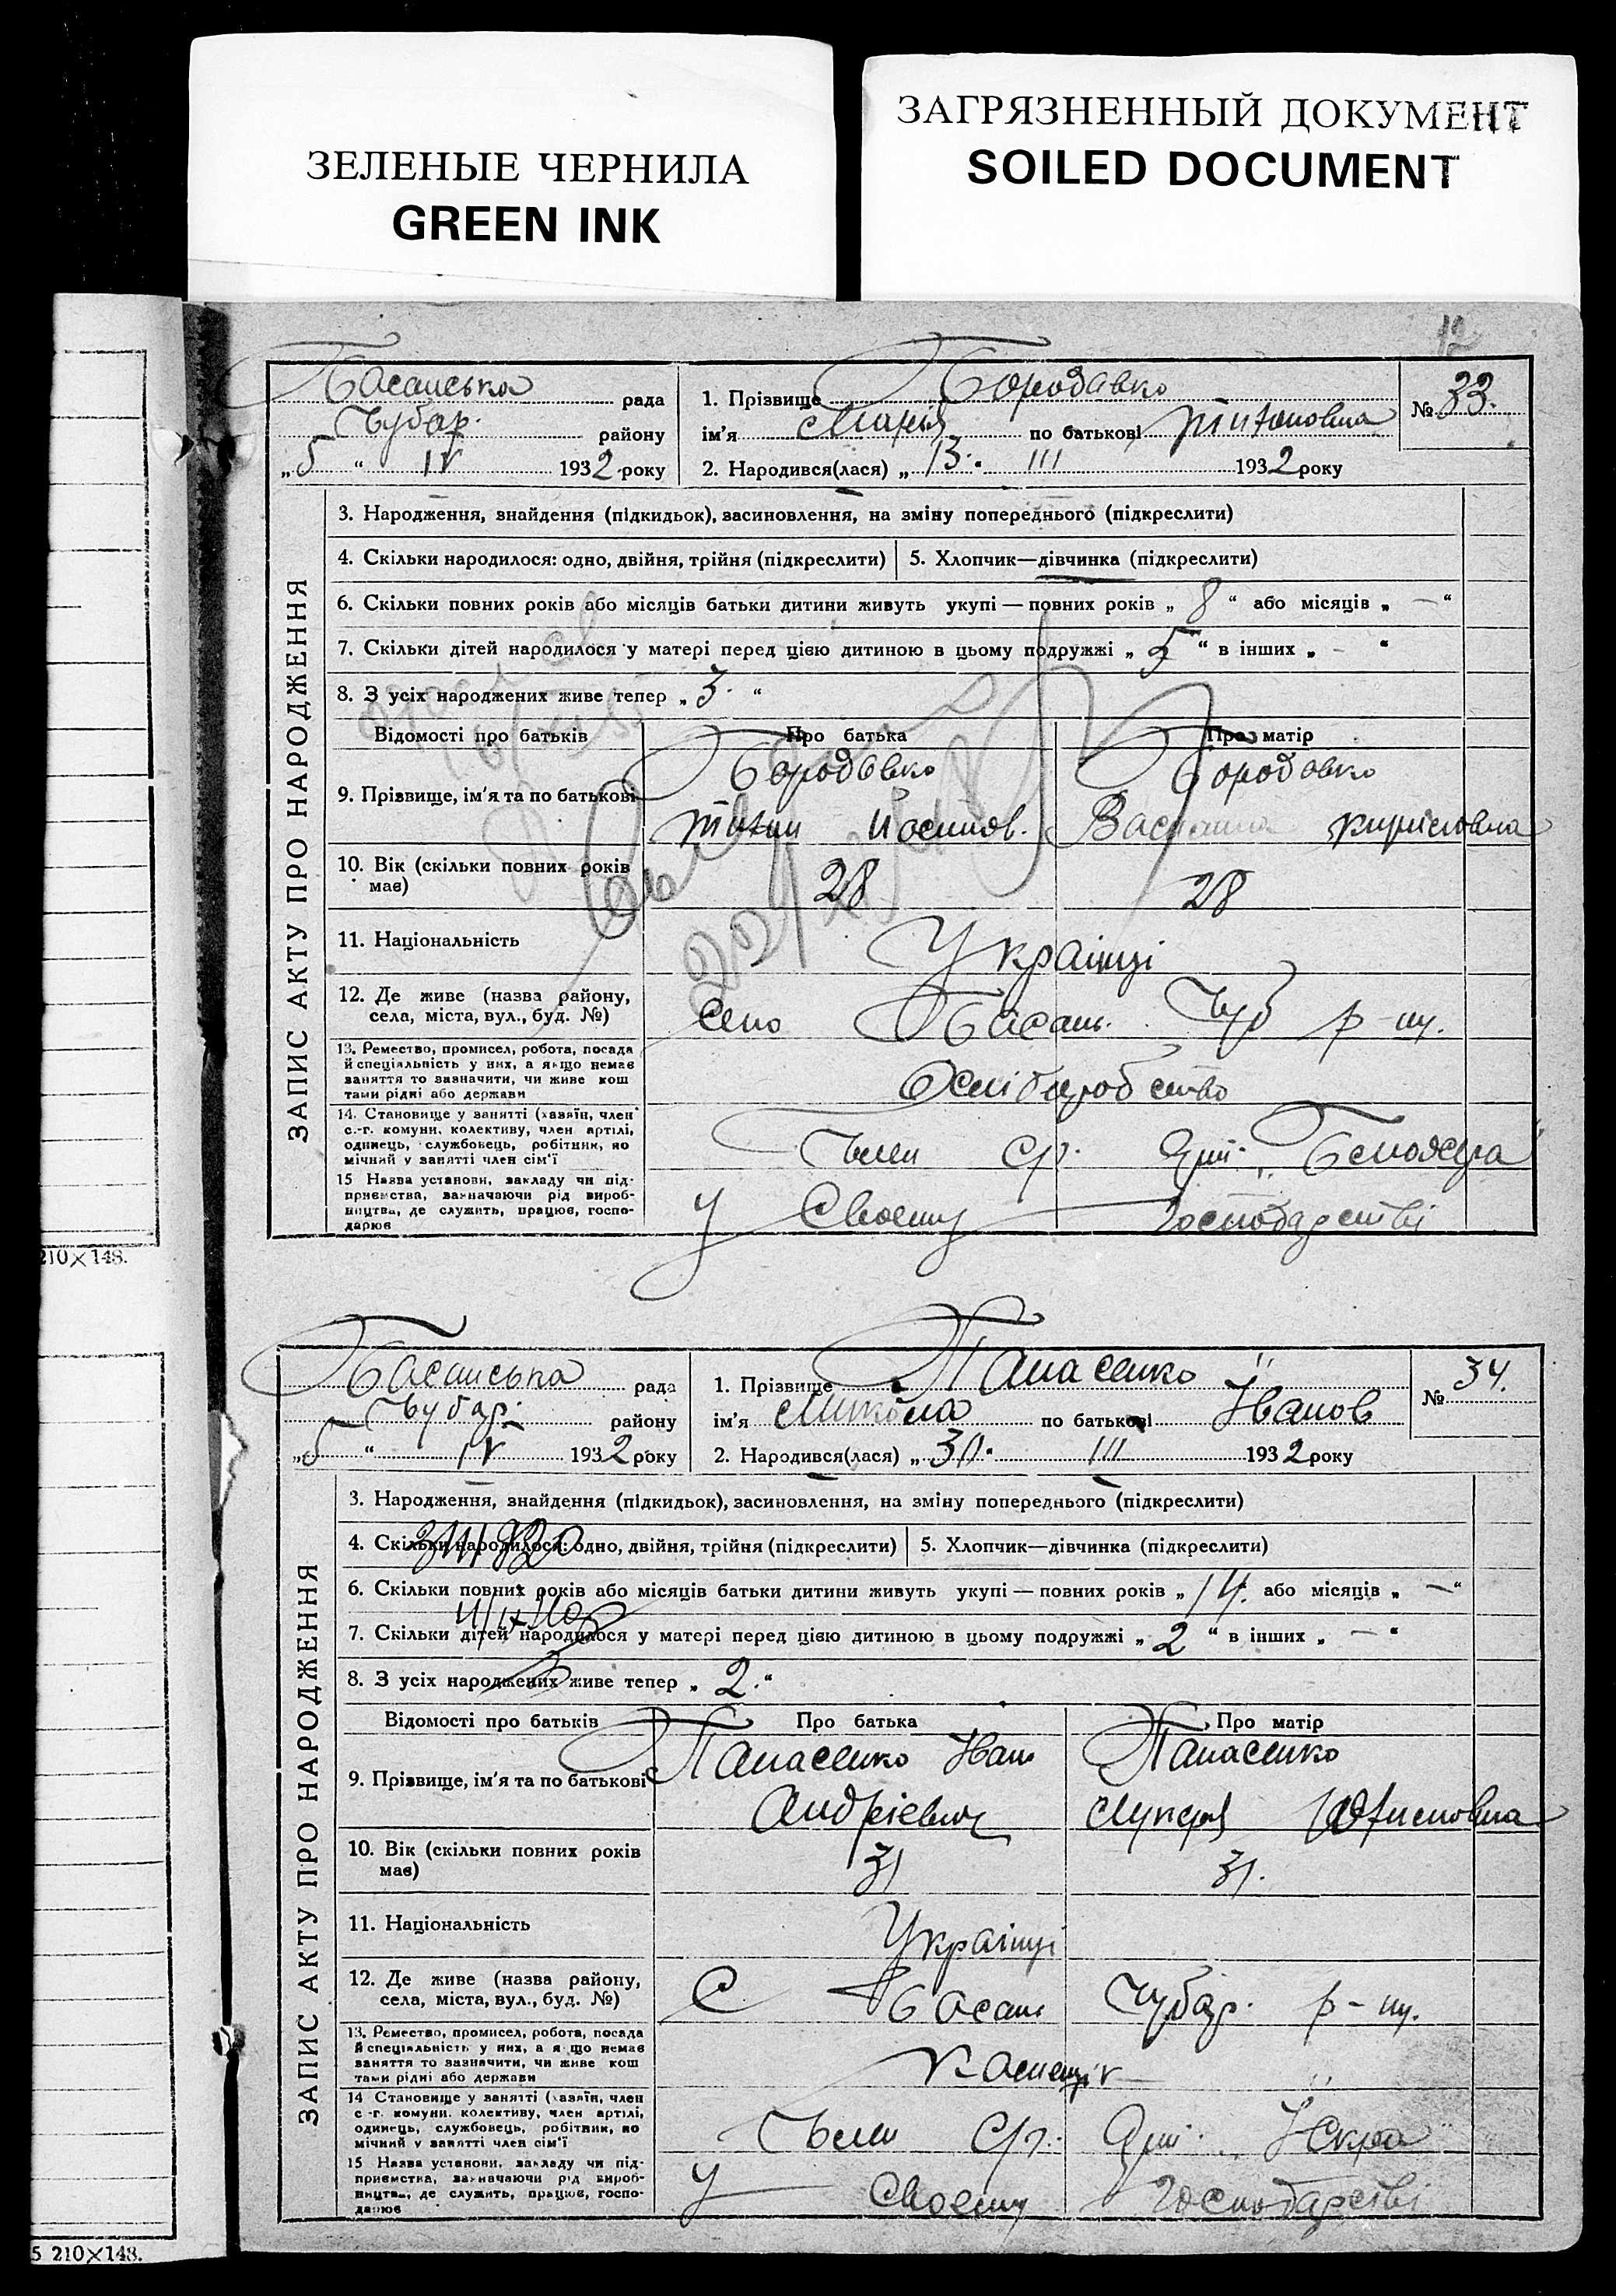 ЗЕЛЕНЫЕ ЧЕРНИЛА
GREEN INK
ЗАГРЯЗНЕННЫЙ ДОКУМЕНТ
SOILED DOCUMENT
12
Басанська рада
Чубар. району
„5“ IV 1932 року
1. Прізвище Бородавко
ім'я Марія по батькові Титовна
2. Народився(лася) „13. III 1932 року
№ 33.
ЗАПИС АКТУ ПРО НАРОДЖЕННЯ
3. Народження, знайдення (підкидьок), засиновлення, на зміну попереднього (підкреслити)
4. Скільки народилося: одно, двійня, трійня (підкреслити)
5. Хлопчик—дівчинка (підкреслити)
6. Скільки повних років або місяців батьки дитини живуть укупі — повних років „8“ або місяців „—“
7. Скільки дітей народилося у матері перед цією дитиною в цьому подружжі „5“ в інших „-“
8. З усіх народжених живе тепер „3.“
Відомості про батьків Про батька Про матір
9. Прізвище, ім'я та по батькові
Бородавко Бородавко
Йосипов.
10. Вік (скільки повних років має)
28 28
11. Національність
Українці
12. Де живе (назва району, села, міста, вул., буд. №)
село Басань. Чуб р-ну.
13. Ремество, промисел, робота, посада
й спеціяльність у них, а якщо немає
заняття то зазначити, чи живе кош
тами рідні або держави
14. Становище у занятті (хазяїн, член
с.-г. комуни, колективу, член артілі,
одинець, службовець, робітник, по
мічний у занятті член сім'ї
Член Ср. Арт.
15 Назва установи, закладу чи під-
приємства, зазначаючи рід вироб-
ництва, де служить, працює, госпо-
дарює
У Своему Господарстві
210×148.
Басанська рада
Чубар. району
„5“ IV 1932 року
1. Прізвище Панасенко
ім'я Микола по батькові Іванов
2. Народився(лася) „30. III 1932 року
№ 34.
ЗАПИС АКТУ ПРО НАРОДЖЕННЯ
3. Народження, знайдення (підкидьок), засиновлення, на зміну попереднього (підкреслити)
4. Скільки народилося: одно, двійня, трійня (підкреслити)
5. Хлопчик—дівчинка (підкреслити)
6. Скільки повних років або місяців батьки дитини живуть укупі — повних років „14. або місяців „—“
7. Скільки дітей народилося у матері перед цією дитиною в цьому подружжі „2“ в інших „—“
8. З усіх народжених живе тепер „2.“
Відомості про батьків Про батька Про матір
9. Прізвище, ім'я та по батькові
Панасенко Іван Панасенко
Андрієвич
10. Вік (скільки повних років має)
31 31.
11. Національність
Українці
12. Де живе (назва району, села, міста, вул., буд. №)
С Басань Чубар. р-ну.
13. Ремество, промисел, робота, посада
й спеціяльність у них, а якщо немає
заняття то зазначити, чи живе кош
тами рідні або держави
14 Становище у занятті (хазяїн, член
с-г. комуни, колективу, член артілі,
одинець, службовець, робітник, по
мічний у занятті член сім'ї
Член Ср. Арт. Іскра
15 Назва установи, закладу чи під-
приємства, зазначаючи рід вироб-
ництва, де служить, працює, госпо-
дарює
У Своему Господарстві
5 210×148.